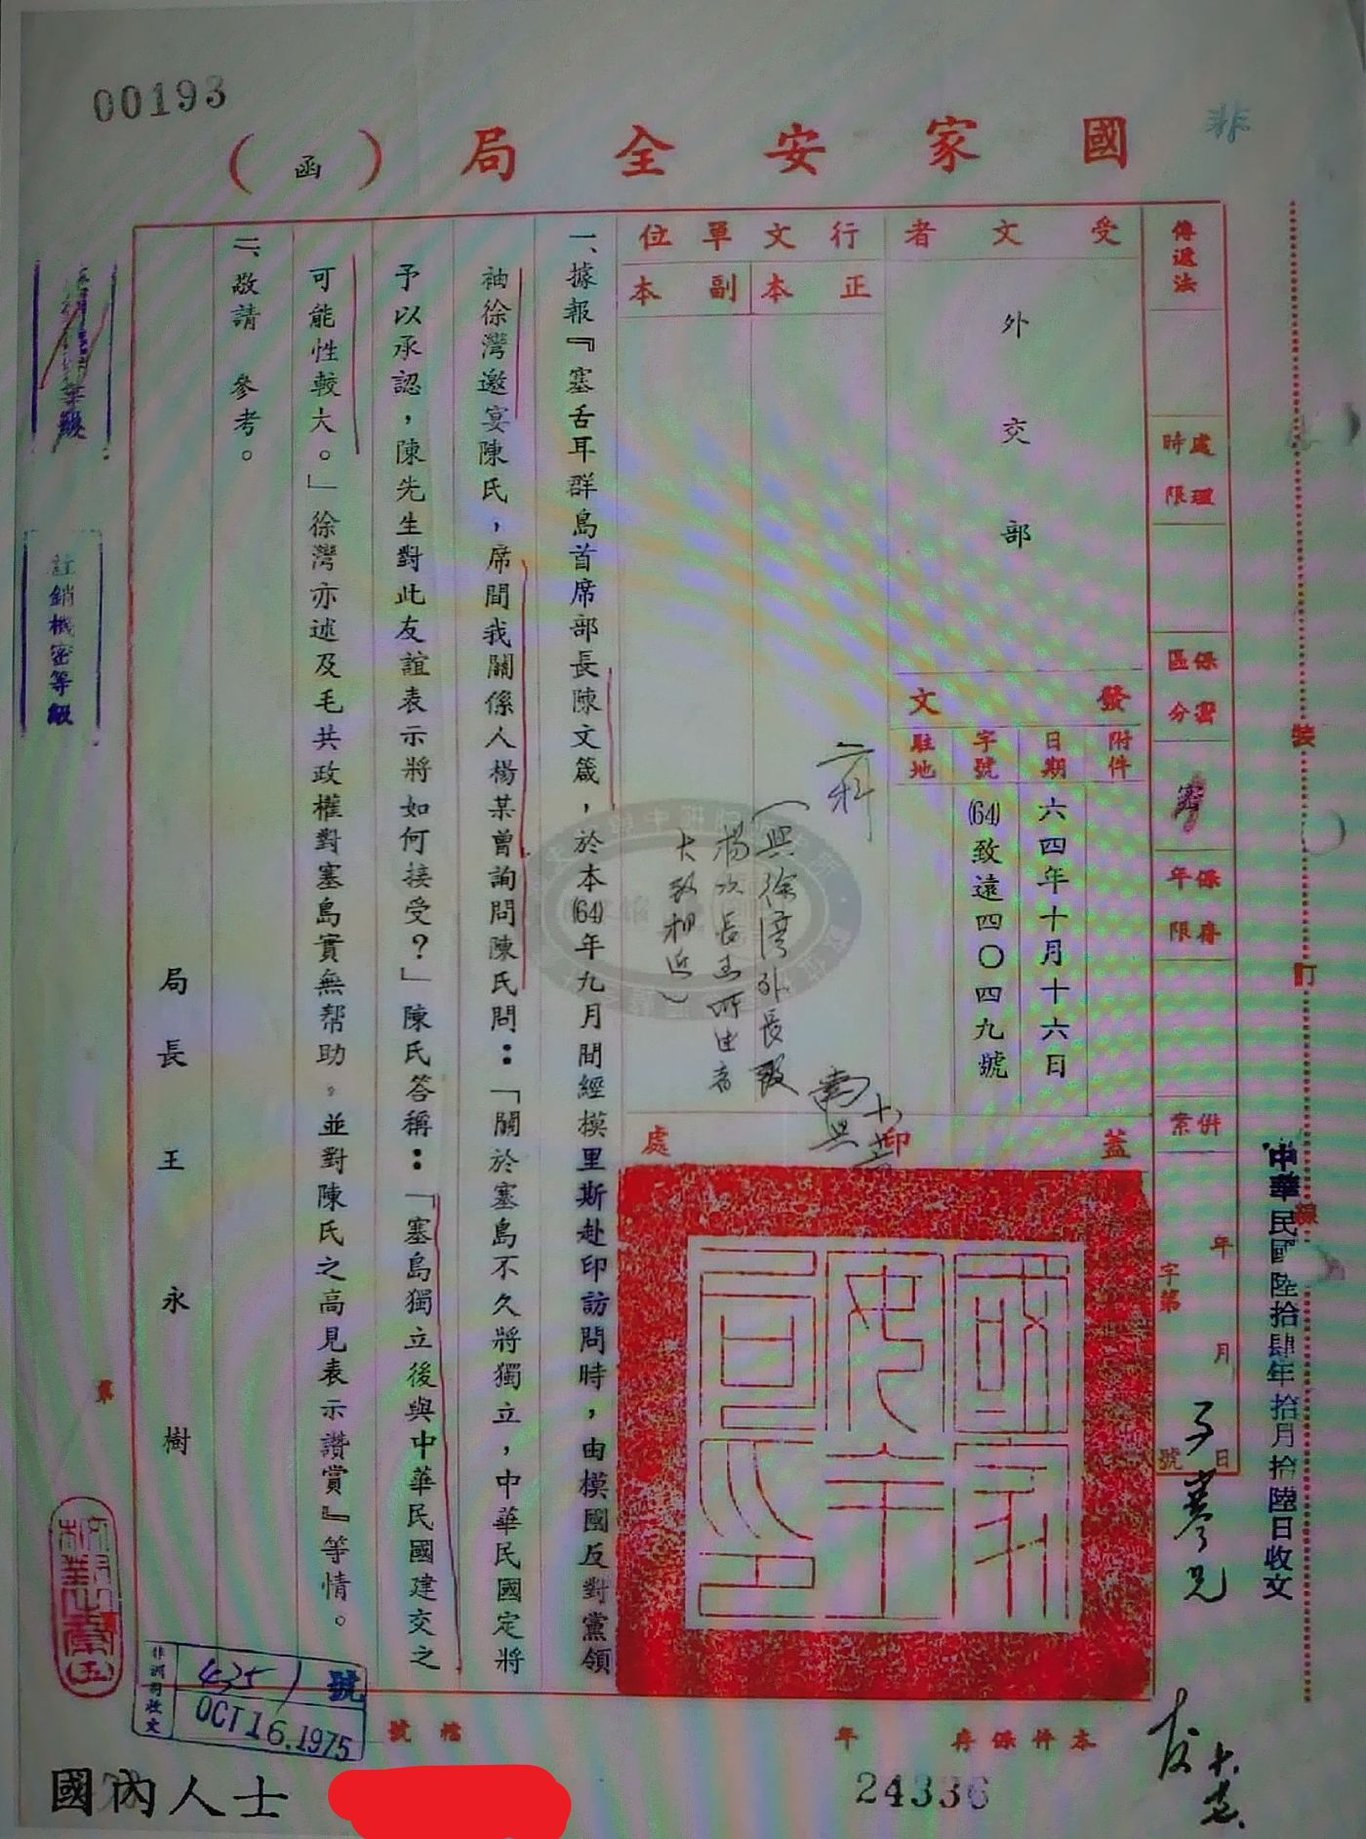 00193
非
國家安全局（函）
傳遞法
處理時限
保密區分
密
保存年限
併案
年 月 日
字第 號
受文者
外交部
發文
附件
日期
六四年十月十六日
字號
(64)致遠四〇四九號
駐地
行文單位
正本
副本
二科
蓋印處
一、據報『塞舌耳群島首席部長陳文箴，於本(64)年九月間經模里斯赴印訪問時，由模國反對黨領
袖徐灣邀宴陳氏，席間我關係人楊某曾詢問陳氏問：「關於塞島不久將獨立，中華民國定將
予以承認，陳先生對此友誼表示將如何接受？」陳氏答稱：「塞島獨立後與中華民國建交之
可能性較大。」徐灣亦述及毛共政權對塞島實無帮助。並對陳氏之高見表示讚賞』等情。
二、敬請　參考。
局長 王永樹
裝
訂
線
中華民國陸拾肆年拾月拾陸日收文
註銷機密等級
第
非洲司收文
號
OCT 16.1975
檔號
本件保存 年
24336
國內人士